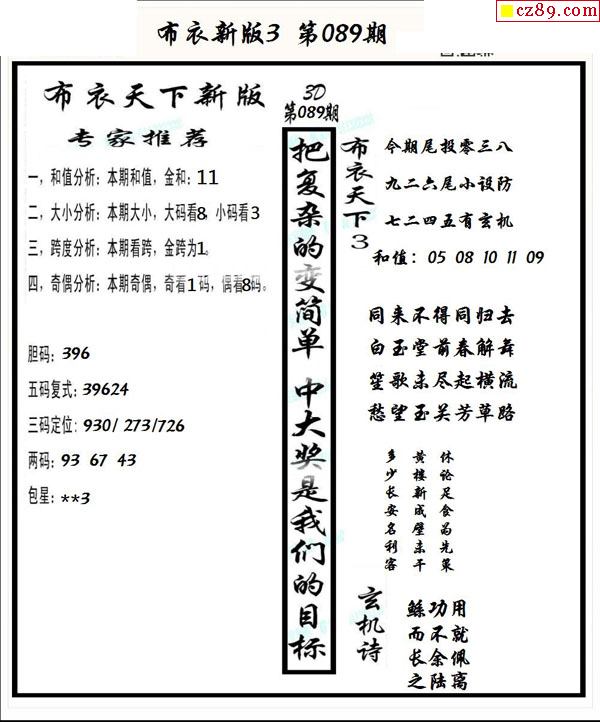 cz89.com
布衣新版3 第089期
布衣天下新版
专家推荐
一，和值分析：本期和值，金和：11
二，大小分析：本期大小，大码看8，小码看3
三，跨度分析：本期看跨，金跨为1。
四，奇偶分析：本期奇偶，奇看1码，偶看8码。
胆码：396
五码复式：39624
三码定位：930/273/726
两码：93 67 43
包星：**3
3D
第089期
把复杂的变简单 中大奖是我们的目标
布衣天下3
今期尾投零三八
九二六尾小设防
七二四五有玄机
和值：05 08 10 11 09
同来不得同归去
白玉堂前春解舞
笙歌未尽起横流
愁望玉关芳草路
休论足食为先策
黄楼新成壁未干
多少长安名利客
玄机诗
鲧功用
而不就
长余佩
之陆离